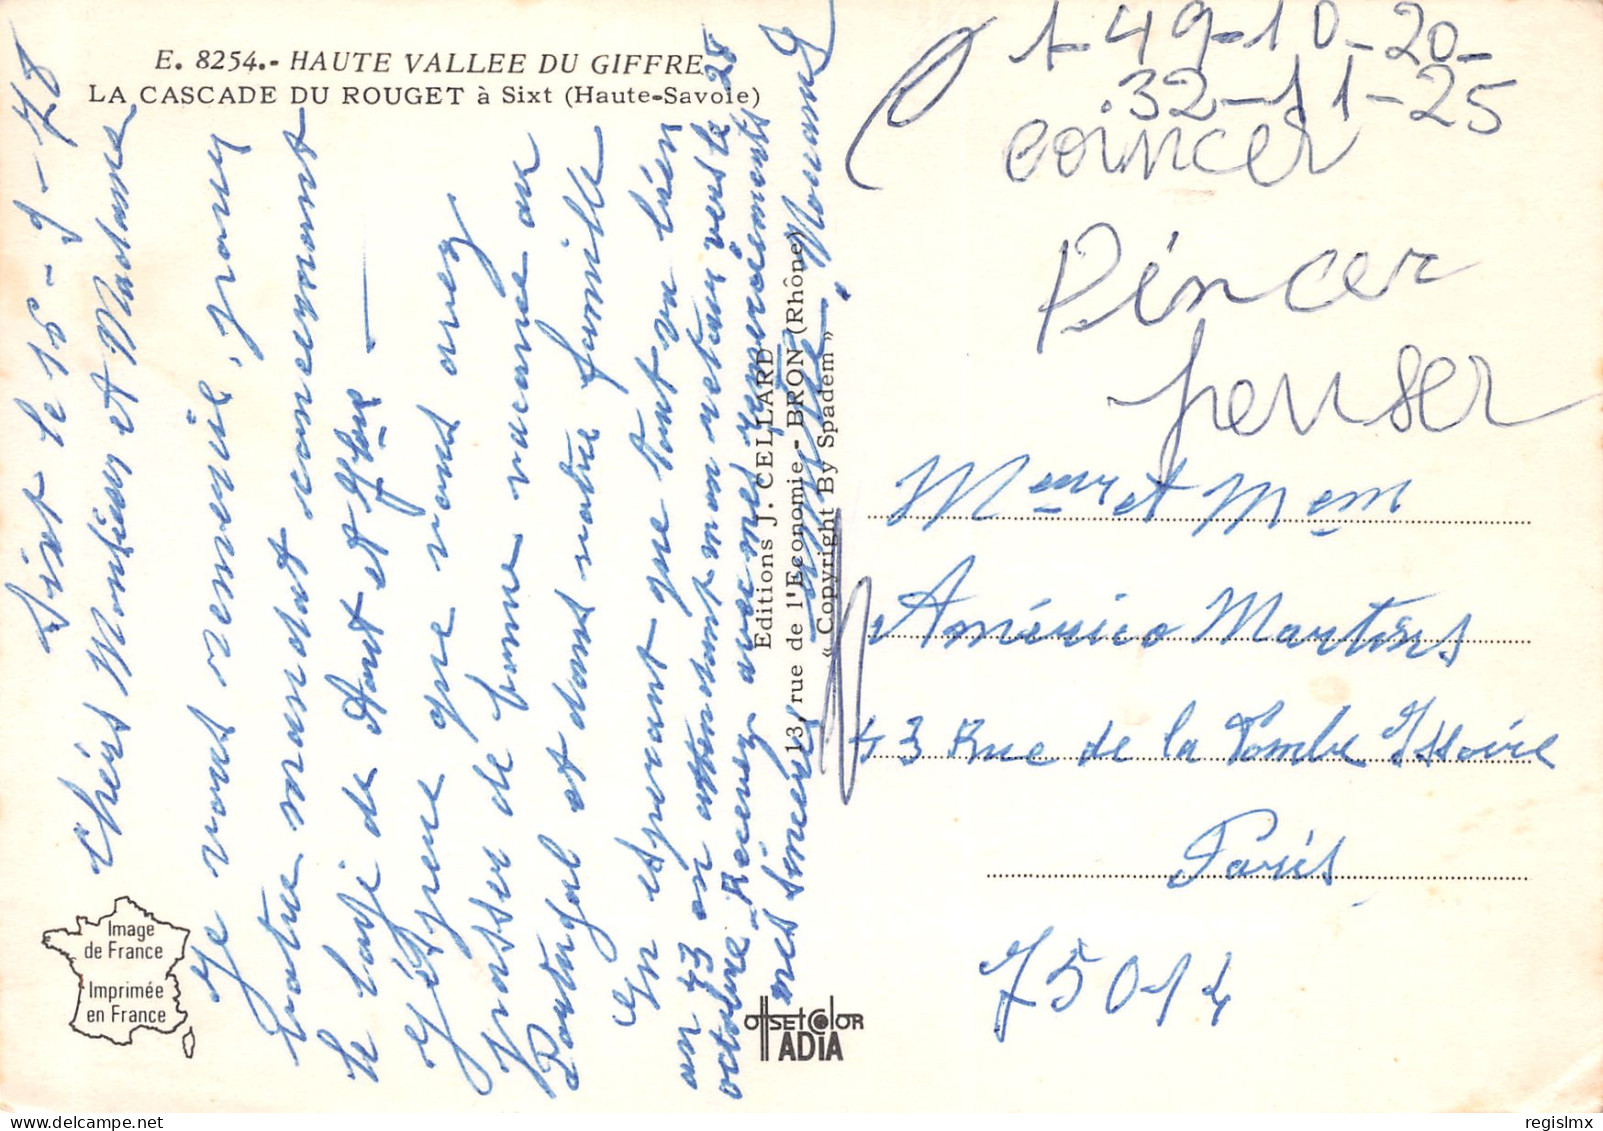 E. 8254.- HAUTE VALLEE DU GIFFRE
LA CASCADE DU ROUGET à Sixt (Haute-Savoie)
Sixt le 15-9-78
Chérs Monsieur et Madame
Je vous remercie, pour
votre mandat concernant
le loye de Aout et 7bre —
J'éspère que vous avez
passer de bonne vacance au
Portugal et dans votre famille
En espérant que tout va bien
au 43 en attendant mon retour vers le 28
octobre. Recevez avec mes remerciements
mes sincères
Editions J. CELLARD
13, rue de l'Economie - BRON (Rhône)
« Copyright By Spadem »
1-49-10-20-
.32-11-25
coincer
Pincer
penser
Meur et Mem
Américo Martins
43 Rue de la Tombe Issoire
Paris
75014
Image
de France
Imprimée
en France
OFFSET COLOR
ADIA
regislmx